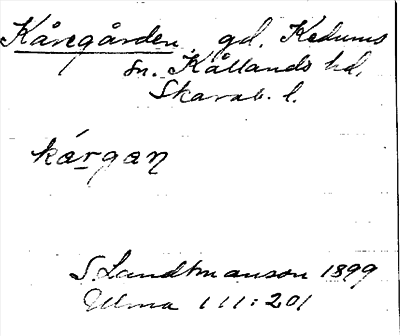 Kåregården, gd, Kedums
sn. Kållands hd,
Skarab. l.
kárgaɳ
S. Landtmanson 1899
Ulma 111:201